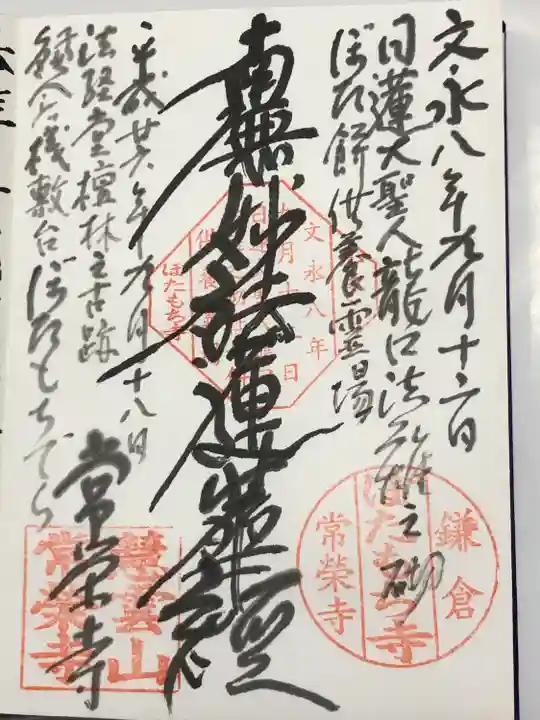 文永八年九月十二日
日蓮大聖人龍口法難之砌
ぼた餅供養霊場
南無妙法蓮華経
平成廿六年十九月十八日
法経堂檀林之古跡
鎌倉桟敷台ぼたもちでら
常栄寺
文永八年
九月十二日
日蓮
供養
ぼたもち寺
鎌倉
ぼたもち寺
常榮寺
慧雲山
常榮寺